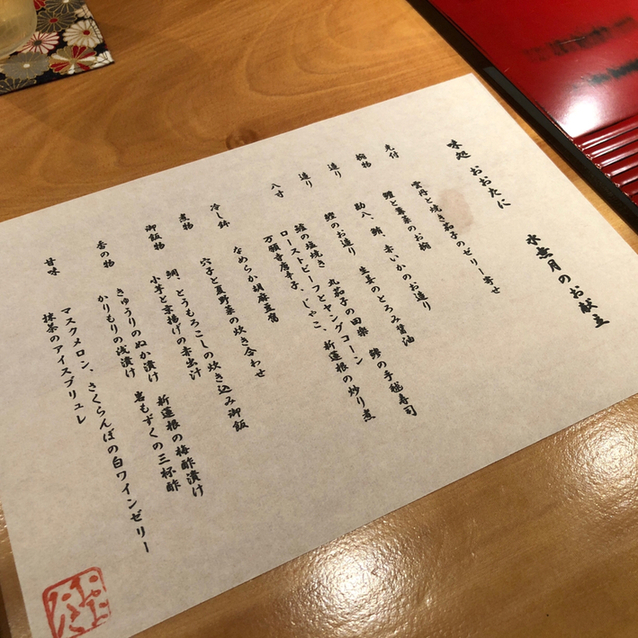 味処 おおたに 水無月のお献立
先付 雲丹と焼き茄子のゼリー寄せ
椀物 鱧と蓴菜のお椀
造り 勘八、鮪、赤いかのお造り
造り 鰹のお造り 生姜のとろみ醤油
八寸 の塩焼き 丸茄子の田楽 鯵の手毬寿司
ローストビーフとヤングコーン
万願寺唐辛子、じゃこ、新蓮根の炒り煮
冷し鉢 なめらか胡麻豆腐
煮物 穴子と夏野菜の炊き合わせ
御飯物 鯛 とうもろこしの炊き込み御飯
小芋と京揚げの赤出汁
香の物 きゅうりのぬか漬け 新蓮根の梅酢漬け
かりもりの浅漬け 岩もずくの三杯酢
甘味 マスクメロン、さくらんぼの白ワインゼリー
抹茶のアイスブリュレ